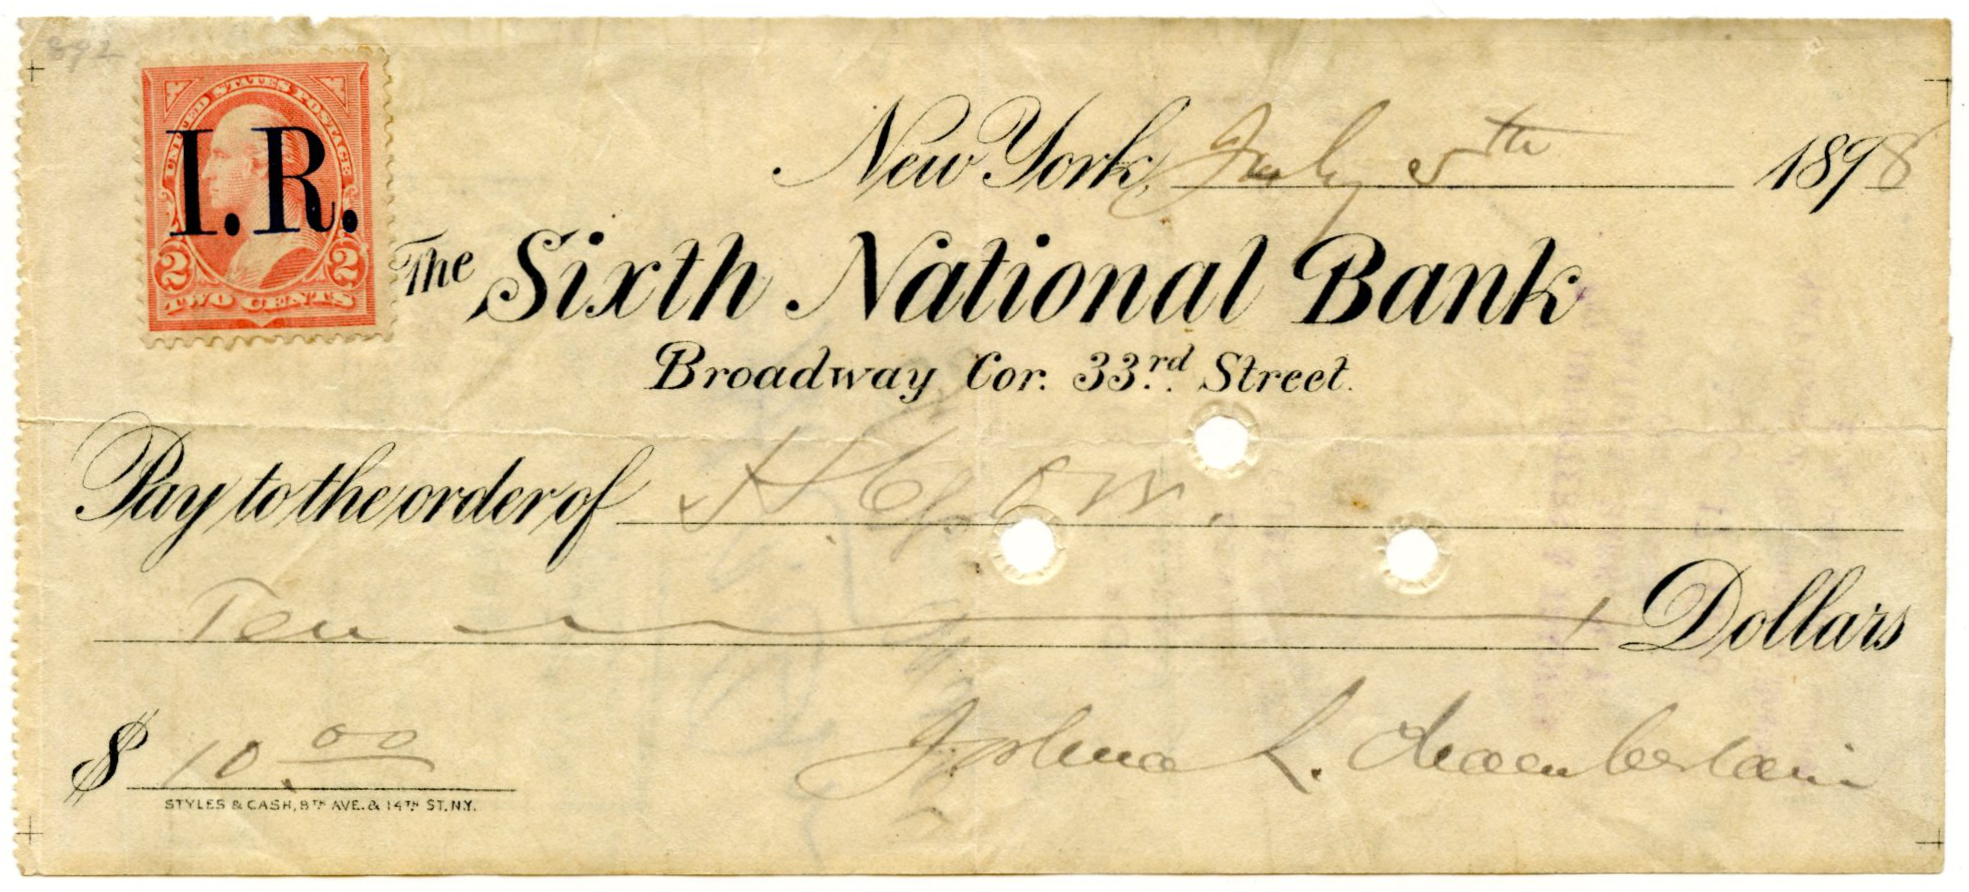 892
UNITED STATES POSTAGE
I.R.
2 2
TWO CENTS
New York, July 5th 1898
The Sixth National Bank
Broadway Cor. 33rd Street.
Pay to the order of
Ten Dollars
$ 10.00
Joshua L. Chamberlain
STYLES & CASH, 8TH AVE. & 14TH ST. N.Y.